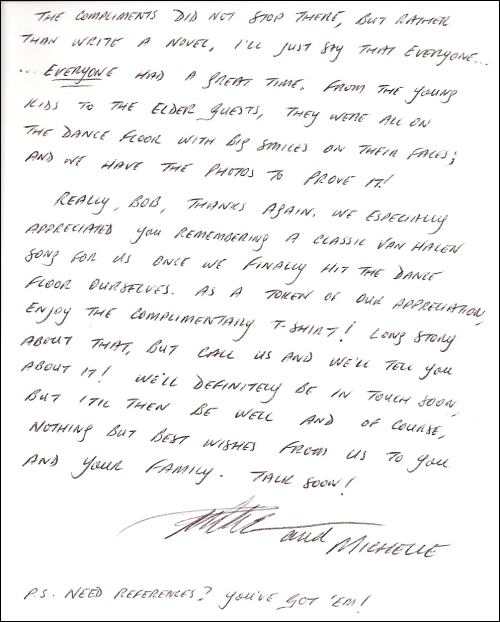 THE COMPLIMENTS DID NOT STOP THERE, BUT RATHER
THAN WRITE A NOVEL, I'LL JUST SAY THAT EVERYONE...
... EVERYONE HAD A GREAT TIME. FROM THE YOUNG
KIDS TO THE ELDER GUESTS, THEY WERE ALL ON
THE DANCE FLOOR WITH BIG SMILES ON THEIR FACES;
AND WE HAVE THE PHOTOS TO PROVE IT!
REALLY, BOB, THANKS AGAIN. WE ESPECIALLY
APPRECIATED YOU REMEMBERING A CLASSIC VAN HALEN
SONG FOR US ONCE WE FINALLY HIT THE DANCE
FLOOR OURSELVES. AS A TOKEN OF OUR APPRECIATION,
ENJOY THE COMPLIMENTARY T-SHIRT! LONG STORY
ABOUT THAT, BUT CALL US AND WE'LL TELL YOU
ABOUT IT! WE'LL DEFINITELY BE IN TOUCH SOON,
BUT 'TIL THEN BE WELL AND OF COURSE,
NOTHING BUT BEST WISHES FROM US TO YOU
AND YOUR FAMILY. TALK SOON!
and MICHELLE
P.S. NEED REFERENCES? YOU'VE GOT 'EM!